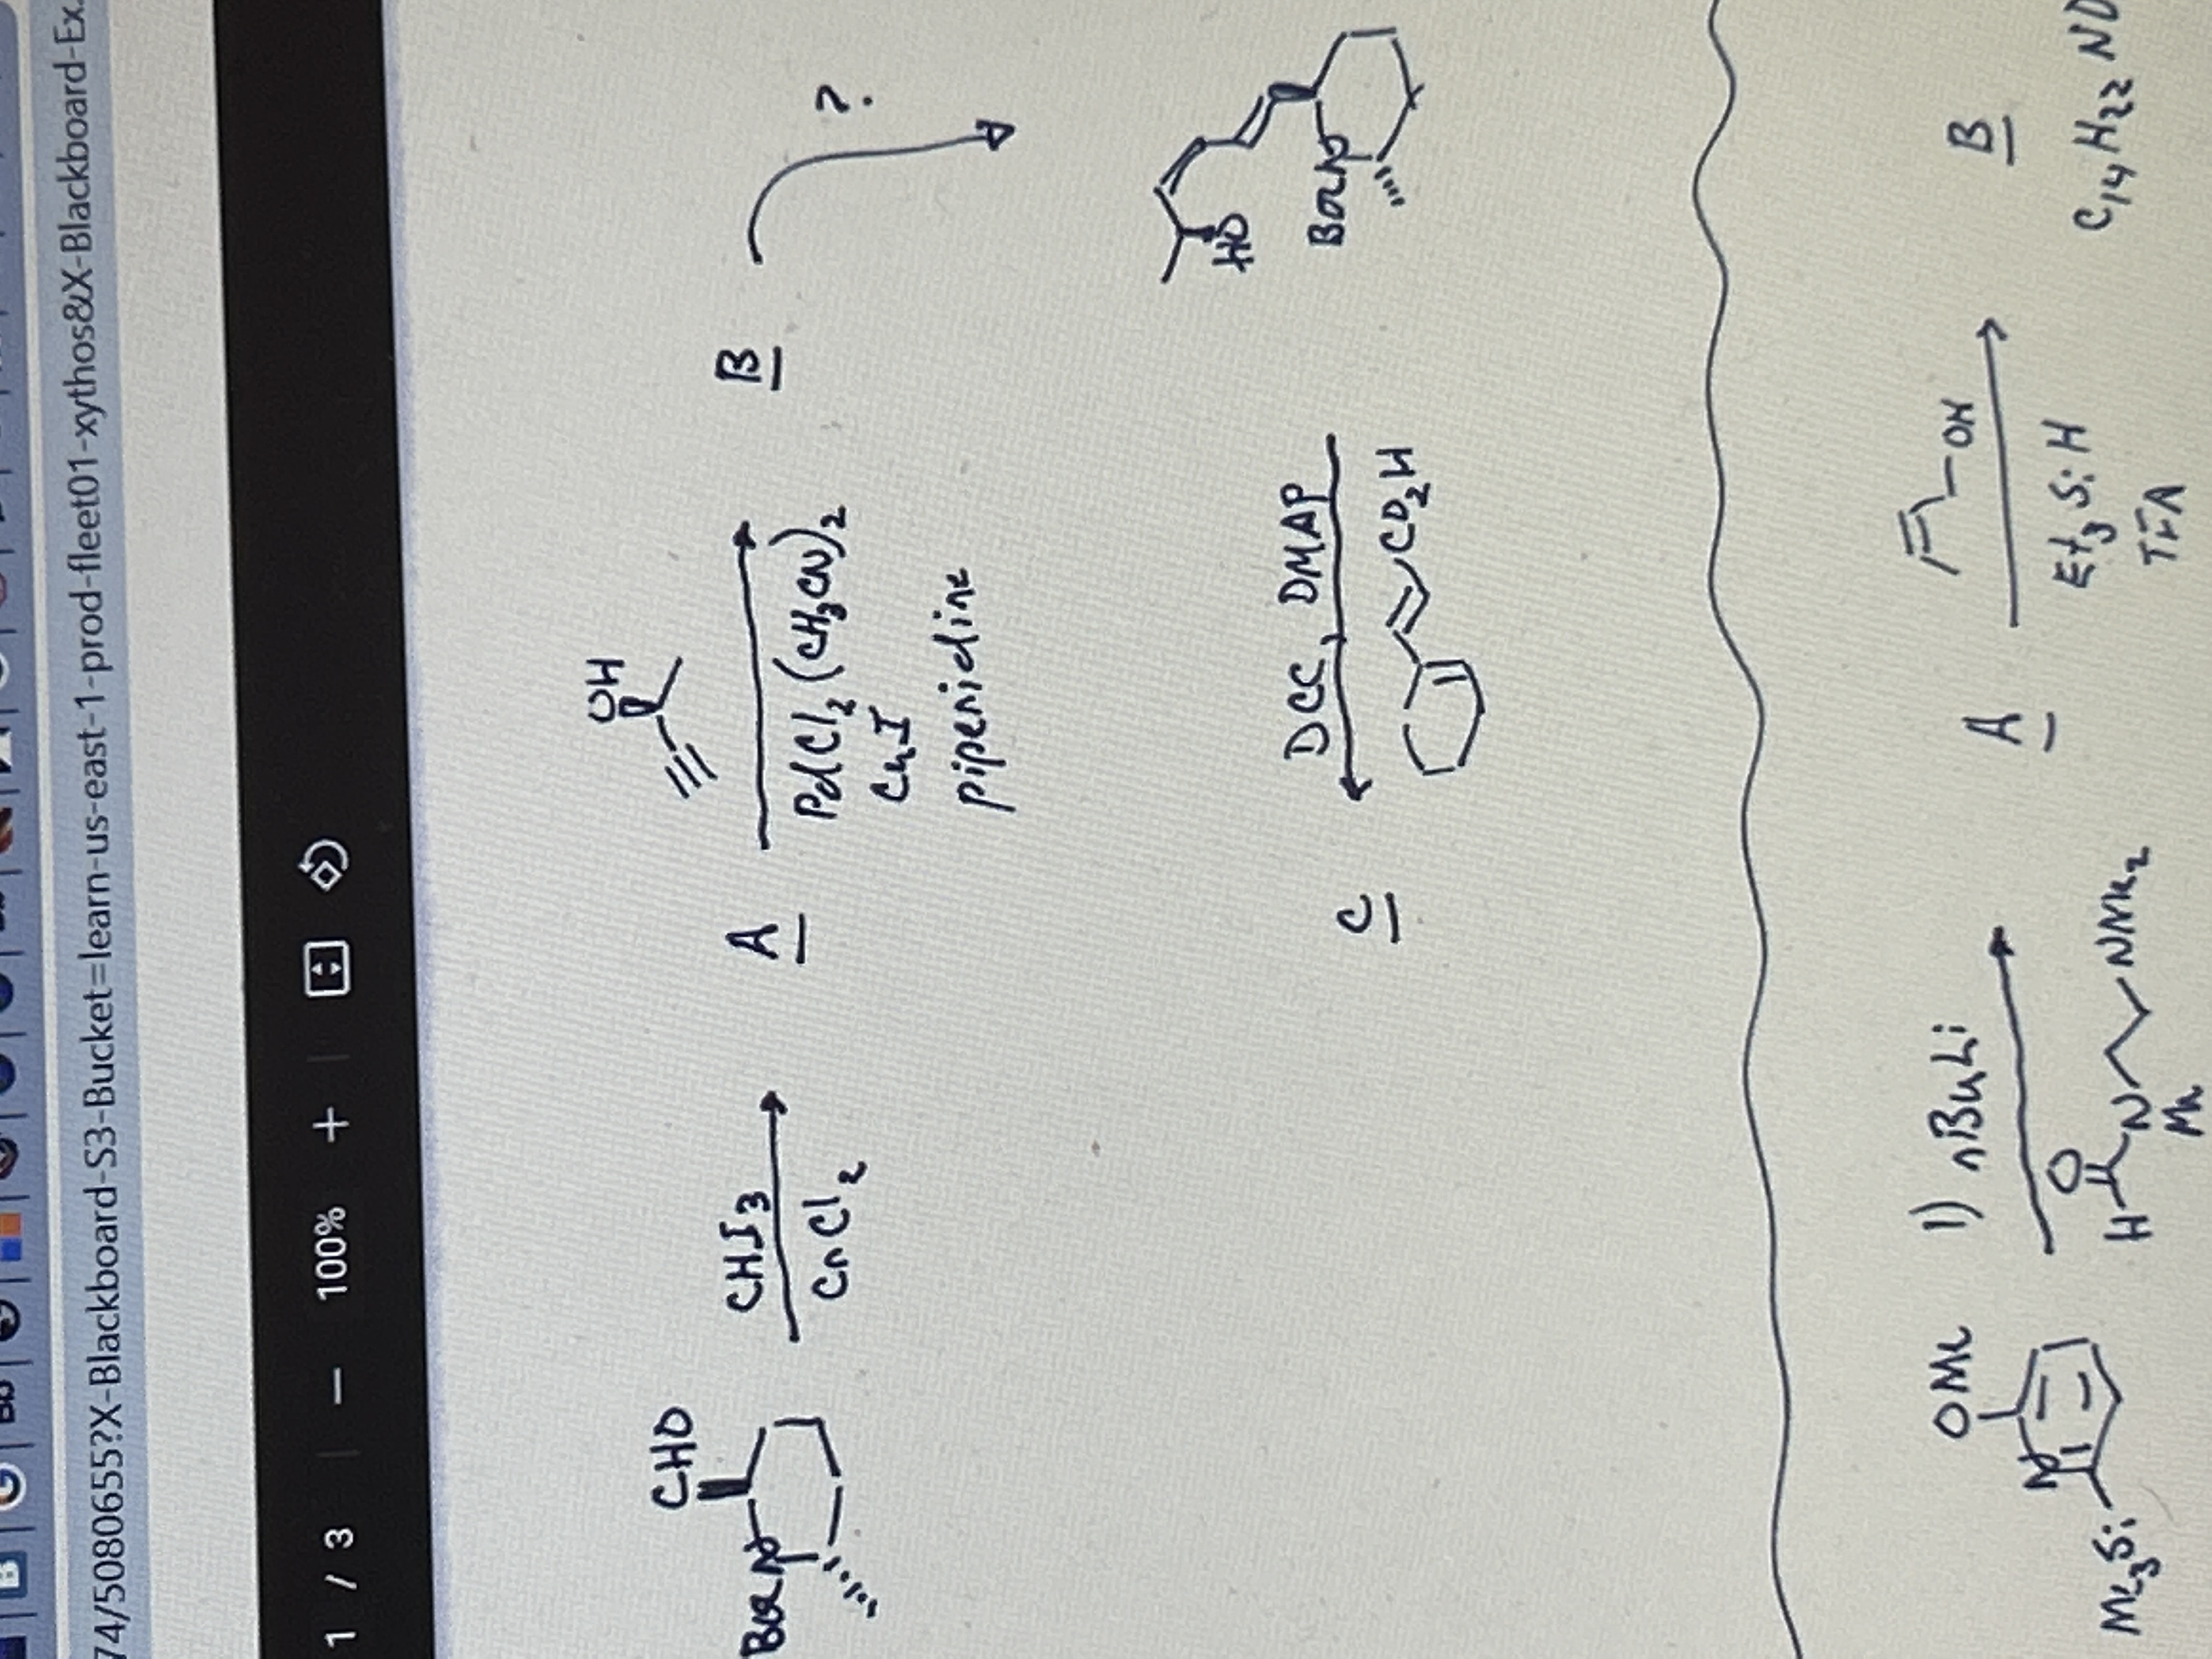 74/50806557?X-Blackboard-S3-Bucket=learn-us-east-1-prod-fleet01-xythos&X-Blackboard-Ex
1 / 3 | − 100% + |
CHO
BocN
CHI3
CrCl2
A
OH
PdCl2(CH3CN)2
CuI
piperidine
B
?
HO
BocN
DCC, DMAP
CO2H
C
OMe
N
Me3Si
1) nBuLi
O
H
N
Me
NMe2
A
OH
Et3SiH
TFA
B
C14H22NO